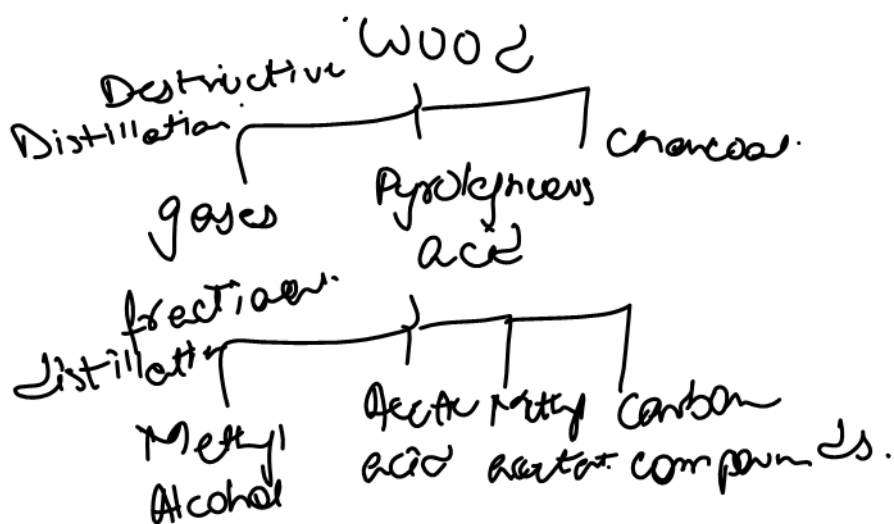 Wood
Destructive
Distillation
gases
Pyroligneous
acid
Charcoal.
fractional
distillation
Methyl
Alcohol
Acetic
acid
Methyl
acetate
Carbon
compounds.